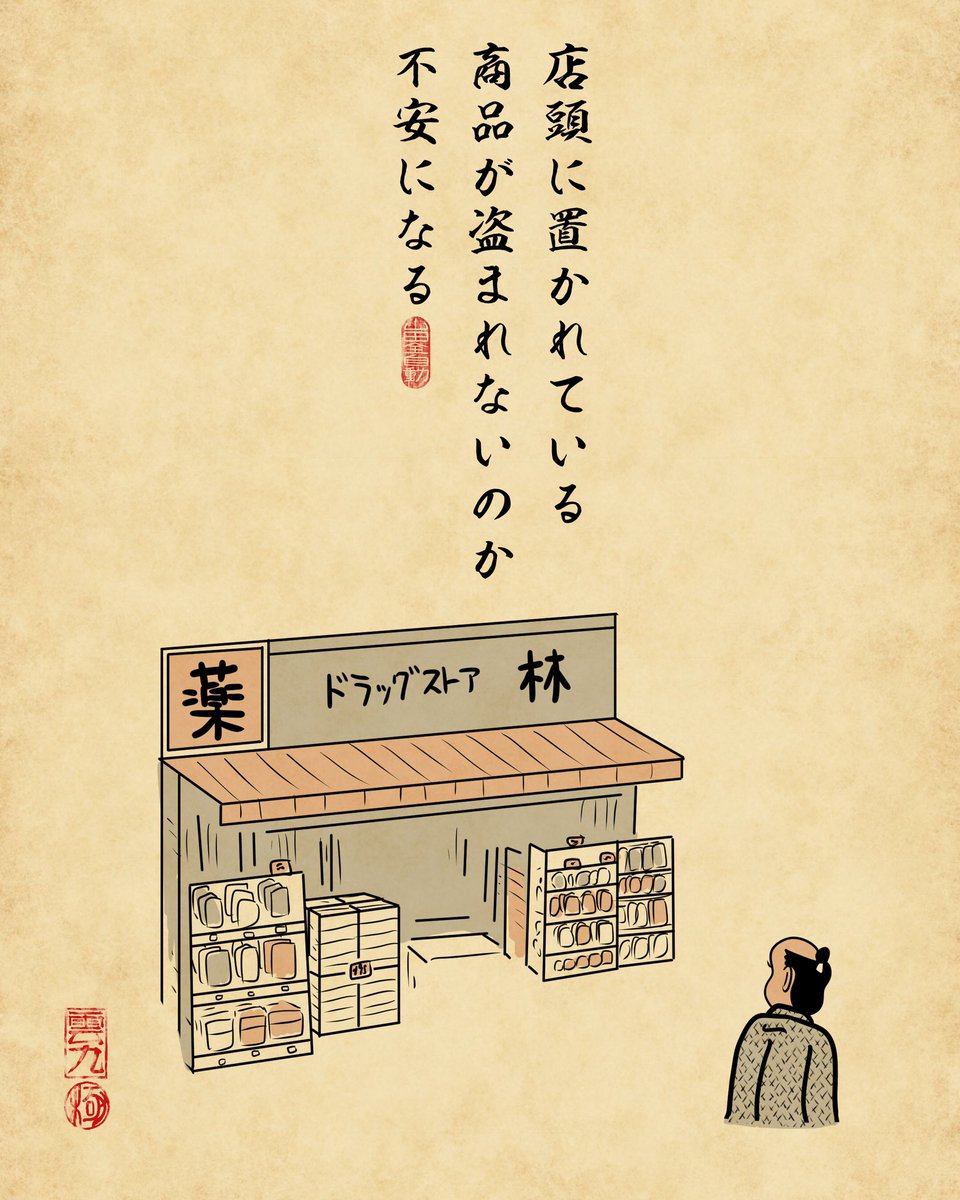 店頭に置かれている
商品が盗まれないのか
不安になる
薬
ドラッグストア 林